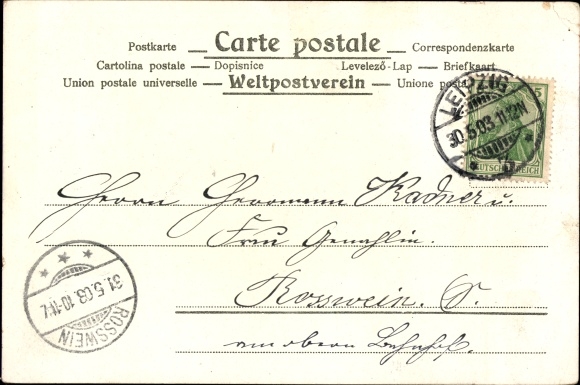 Postkarte — Carte postale — Correspondenzkarte
Cartolina postale — Dopisnice Levelező-Lap — Briefkaart
Union postale universelle — Weltpostverein — Unione postale
LEIPZIG
30.5.03.11-12N
5
DEUTSCHES REICH
Herrn Herrmann Kadner u.
Frau Gemahlin.
Rosswein. S.
am obern Bahnhof.
31.5.03.10-11V.
ROSSWEIN